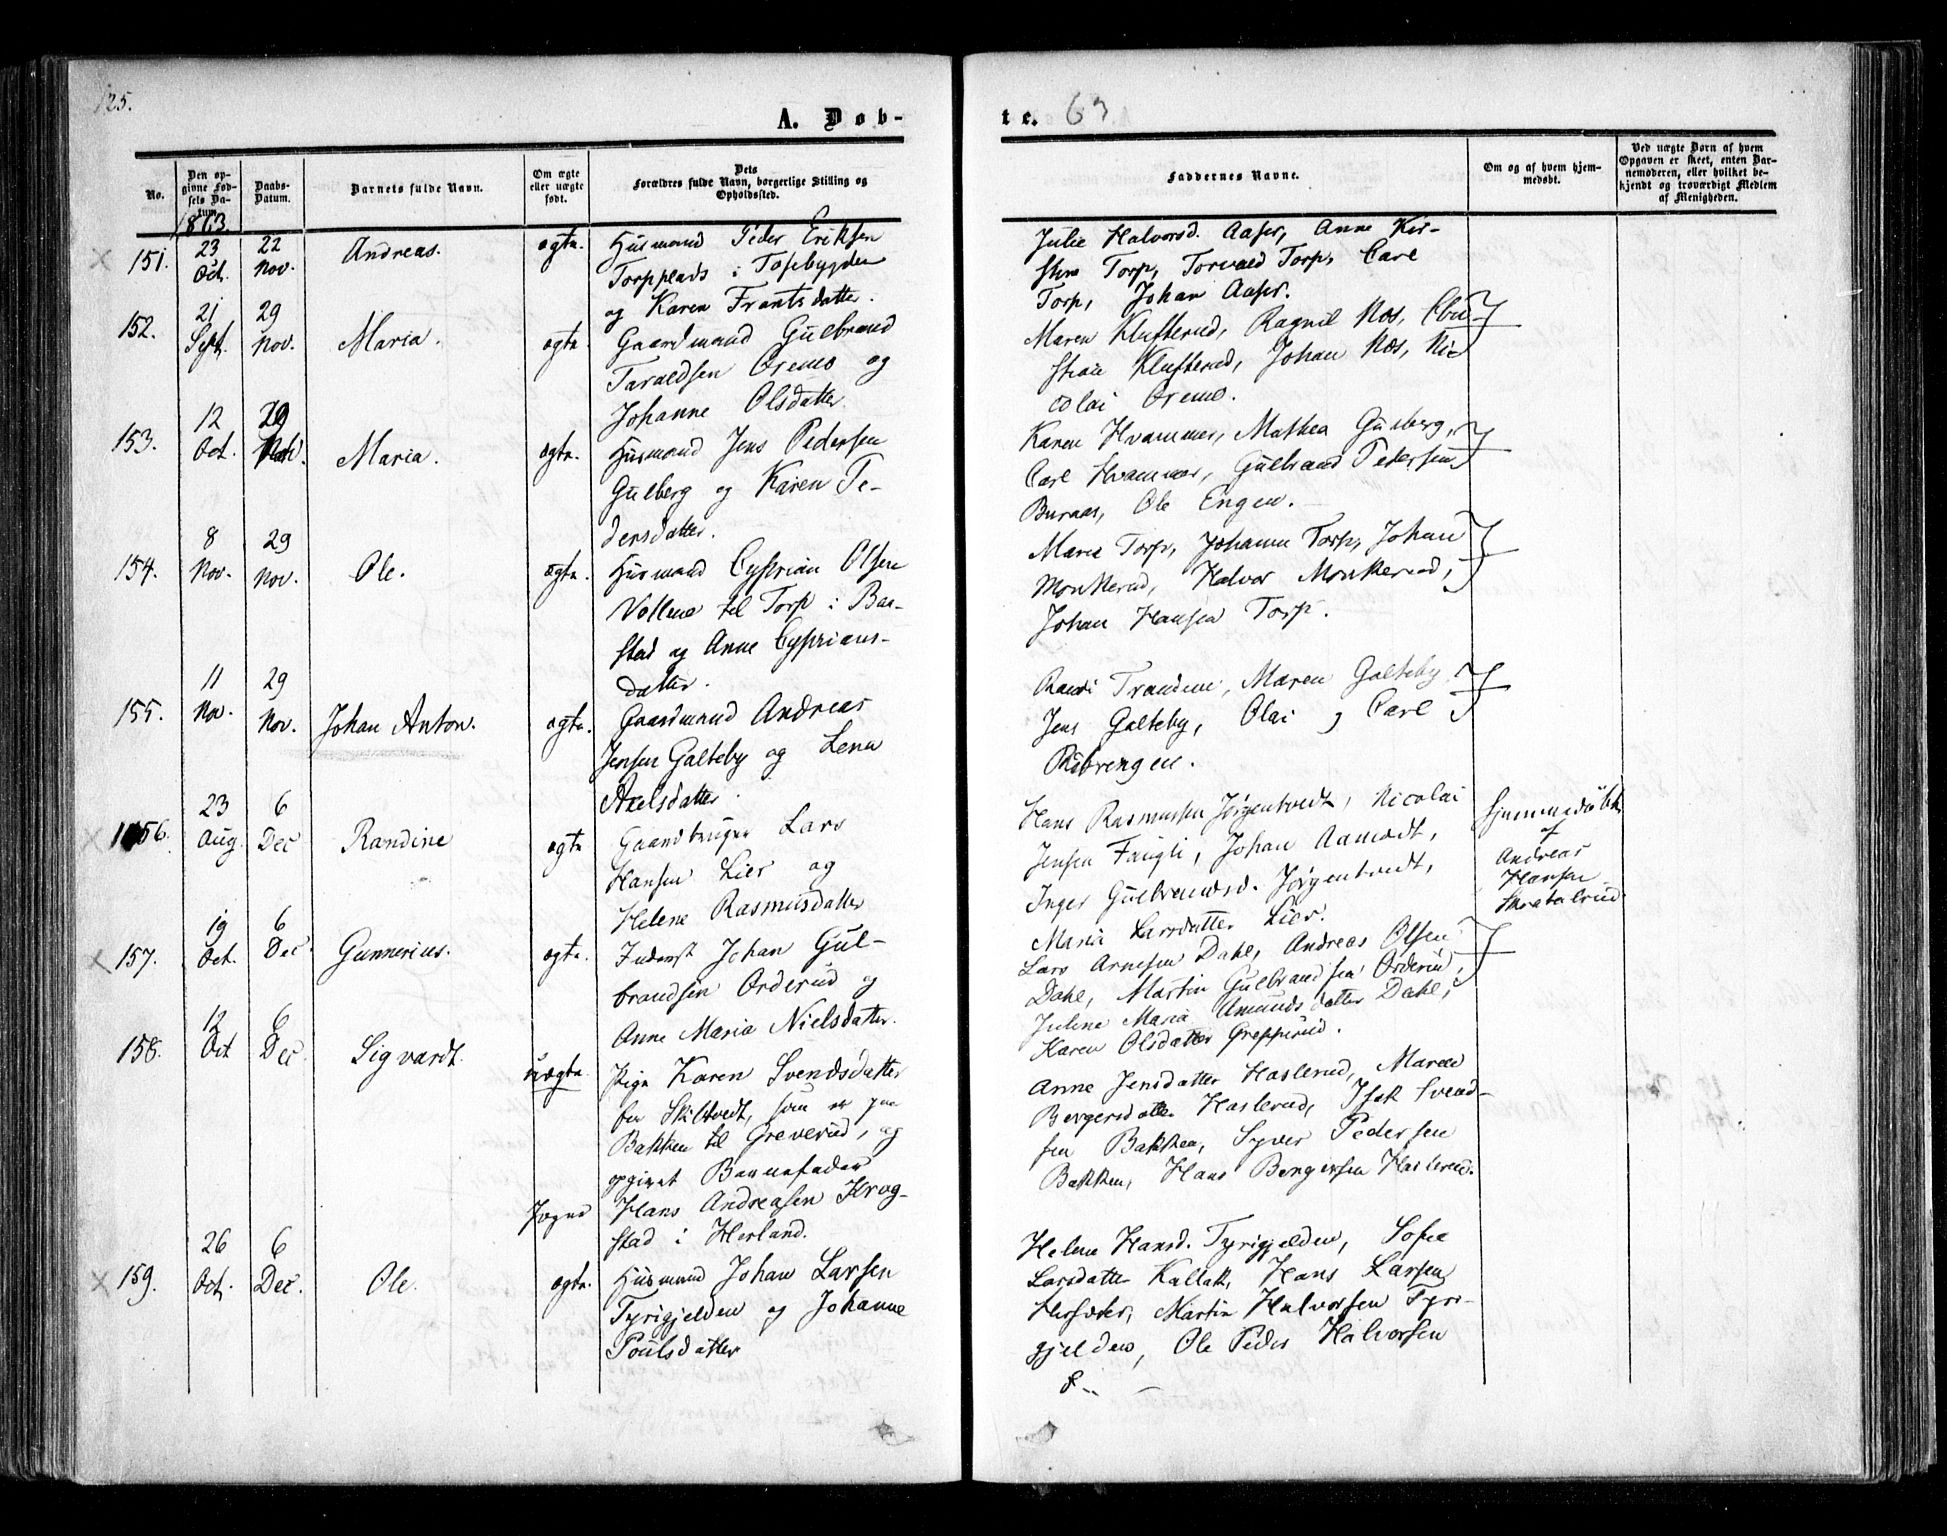 125.
A. Døb-
te. 63
No.
Den op-
givne Fød-
sels Da-
tum.
Daabs-
Datum.
Barnets fulde Navn.
Om ægte
eller uægte
født.
Dets
Forældres fulde Navn, borgerlige Stilling og
Opholdssted.
Faddernes Navne.
Om og af hvem hjem-
medøbt.
Ved uægte Børn af hvem
Opgaven er skeet, enten Bar-
nemoderen, eller hvilket be-
kjendt og troværdigt Medlem
af Menigheden.
1863.
151. 23 Oct. 22 Nov. Andreas. ægte. Husmand Peder Eriksen
Torpplads i Tosebygden
og Karen Frantsdatter.
Julie Halvorsd. Aaser, Anne Kir-
stine Torp, Torvald Torp, Carl
Torp, Johan Aaser.
152. 21 Sept. 29 Nov. Maria. ægte. Gaardmand Gulbrand
Taraldsen Oremo og
Johanne Olsdatter
Maren Klufterud, Ragnil Næs, Chri-
stian Klufterud, Johan Næs, Ni-
colai Oremo.
153. 12 Oct. 29 Nov. Maria. ægte. Husmand Jens Pedersen
Gulberg og Karen Pe-
dersdatter.
Karen Hvammer, Mathea Gulberg,
Carl Hvammer, Gulbrand Pedersen
Buraas, Ole Engen.
154. 8 Nov. 29 Nov. Ole. ægte. Husmand Cyprian Olsen
Vollene til Torp i Baa-
stad og Anne Cyprians-
datter.
Maria Torp, Johanne Torp, Johan
Monkerud, Halvor Monkerud,
Johan Hansen Torp.
155. 11 Nov. 29 Nov. Johan Anton. ægte. Gaardmand Andreas
Jensen Galteby og Lena
Axelsdatter.
Randi Trandem, Maren Galteby
Jens Galteby, Olai og Carl
Ribrengen.
156. 23 Aug. 6 Dec Randine ægte Gaardbruger Lars
Hansen Lier og
Helene Rasmusdatter
Hans Rasmussen Jørgentvedt, Nicolai
Jensen Faugli, Johan Aamodt,
Inger Gulbrandsd. Jørgentvedt,
Maria Larsdatter Lier.
Hjemmedøbt
af
Andreas
Hansen
157. 19 Oct. 6 Dec. Gunnerius. ægte. Inderst Johan Gul-
brandsen Orderud og
Anne Maria Nielsdatter.
Lars Arnesen Dahl, Andreas Olsen
Dahl, Martin Gulbrandsen Orderud,
Juline Maria Amundsdatter Dahl,
Karen Olsdatter Grepperud.
158. 12 Oct 6 Dec. Sigvardt. uægte. Pige Karen Svendsdatter
fra Skiltvedt, som er paa
Bakken til Greverud, og
opgivet Barnefader
Hans Andreasen Krog-
stad i Herland.
Anne Jensdatter Haslerud, Maren
Bergersdatter Haslerud, Isak Svend-
sen Bakken, Syver Pedersen
Bakken, Hans Bergersen Haslerud.
159. 26 Oct. 6 Dec. Ole. ægte. Husmand Johan Larsen
Tyrigjelden og Johanne
Poulsdatter
Helene Hansd. Tyrigjelden, Sofie
Larsdatter Kallak, Hans Larsen
Martin Halvorsen Tyri-
gjelden, Ole Peder Halvorsen